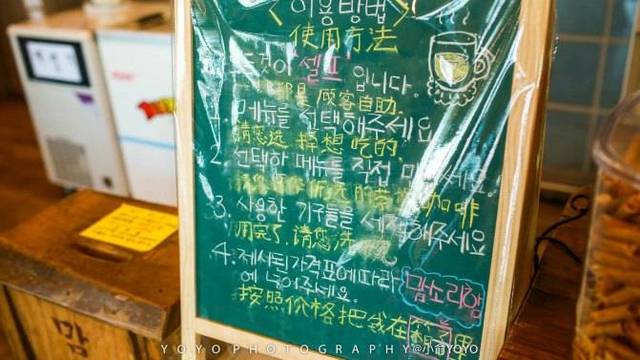 이용방법
使用方法
셀프 입니다.
都是 顾客自助.
1. 메뉴를 선택해주세요
请您选择想吃的.
2. 선택한 메뉴를 직접
咖啡
3. 사용한 기구들을 해주세요
用完了,请您洗
4. 제시된 가격표에 따라 맘소리함
에 넣어주세요.
按照价格把钱在
YOYO PHOTOGRAPHY@小俞YOYO